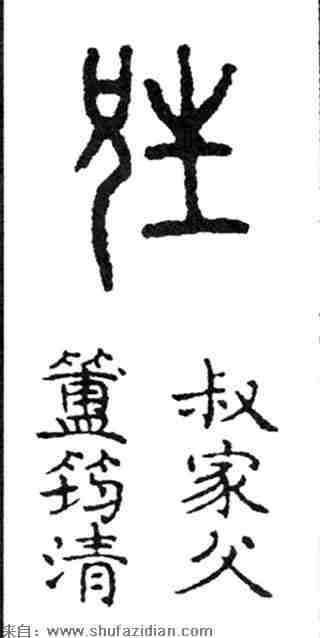 叔家父
簠筠清
来自：www.shufazidian.com